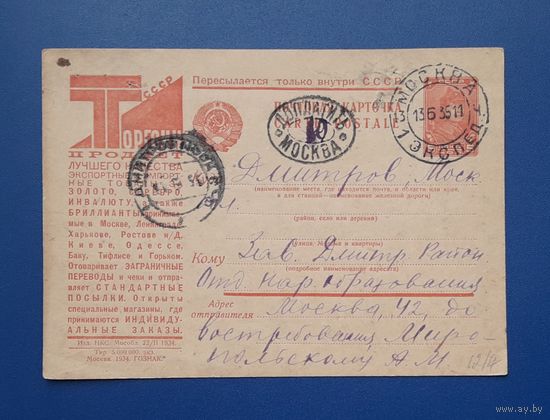 СССР
ТОРГСИН
ПРОДАЕТ
ЛУЧШЕГО КАЧЕСТВА
ЭКСПОРТНЫЕ ИМПОРТ-
НЫЕ ТОВ
ЗОЛОТО, СЕРЕБРО,
ИНВАЛЮТУ, также
БРИЛЛИАНТЫ принимае-
мые в Москве, Ленинграде
Харькове, Ростове н/Д,
Киеве, Одессе,
Баку, Тифлисе и Горьком.
Отоваривает ЗАГРАНИЧНЫЕ
ПЕРЕВОДЫ и чеки и отпра-
вляет СТАНДАРТНЫЕ
ПОСЫЛКИ. Открыты
специальные магазины, где
принимаются ИНДИВИДУ-
АЛЬНЫЕ ЗАКАЗЫ.
Изд. НКС. Мособл. 22/II 1934.
Тир. 5.000.000 экз.
Москва. 1934. ГОЗНАК.
Пересылается только внутри СССР
ПОЧТОВАЯ КАРТОЧКА
CARTE POSTALE
ДОПЛАТИТЬ
10
МОСКВА
МОСКВА
13 6 35 11
1 ЭКСПЕД
Дмитров, Моск
(наименование места, где находится почта, и области или края,
а для станций—наименование железной дороги)
(район, село или деревня)
(улица, № дома и квартиры)
Кому Зав. Дмитр. Район
(подробное наименование адресата)
Отд. Нар. образования
Адрес
отправителя Москва, 42, до
востребования Миро-
польскому А. М.
12/II
ay.by